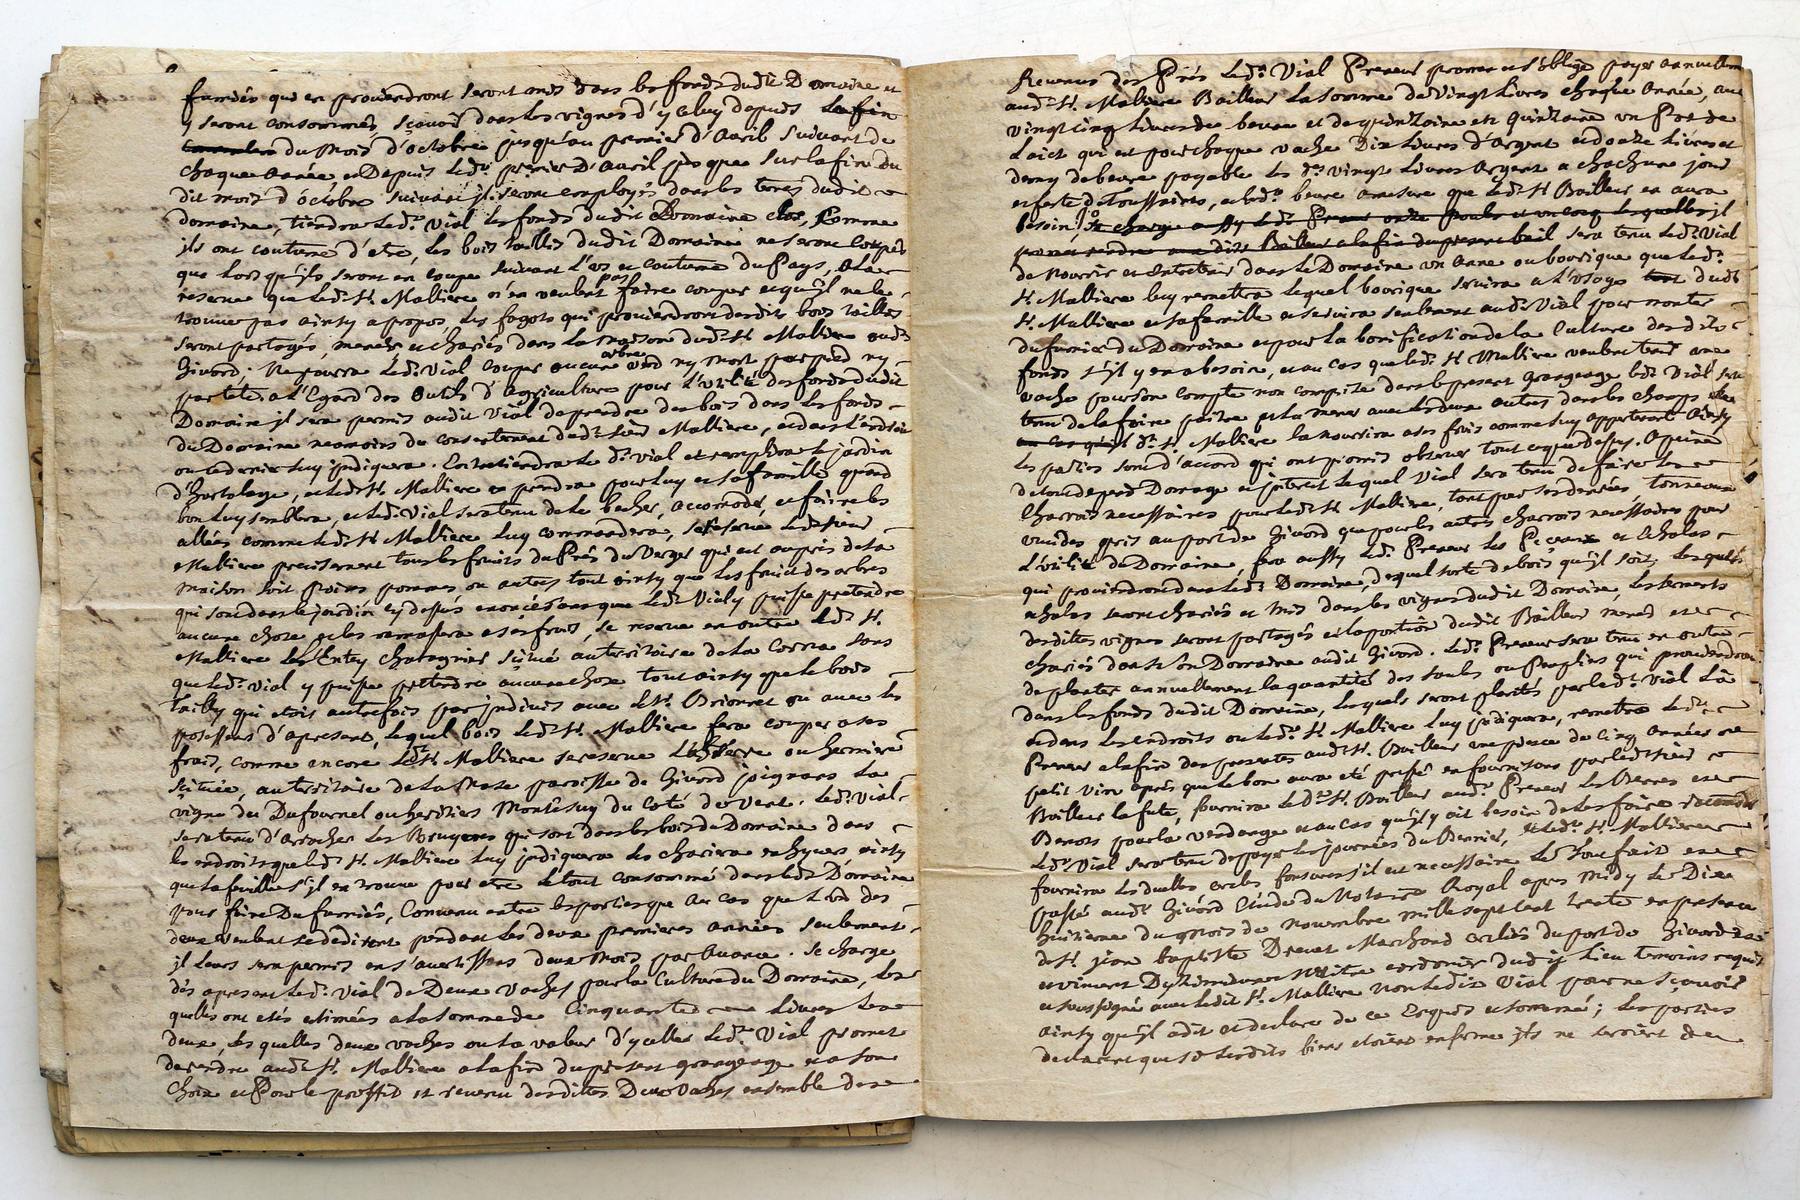 fumiés qui en proviendront seront mis dans les fonds dudit Domaine et
y seront consommés, sçavoir dans les vignes d'yceluy depuis la fin
du mois d'octobre jusqu'au premier d'avril suivant de
chaque année et Depuis led.t premier d'avril jusque sur la fin du
dit mois d'octobre suivant jl. seront employés dans les terres dudit
domaine, tiendra led.t Vial les fonds dudit Domaine clos, Comme
jls ont coutume d'etre, les bois taillis dudit Domaine ne seront coupés
que lors qu'jls seront en coupe suivant l'us et coutume du Pays, a la
reserve que led.t S.r Malliere n'en veulent pas faire couper et qu'jl ne le
trouve pas ainsy a propos, Les fagots qui proviendront desdits bois taillis
seront partagés, menés et chariés dans la maison dud.t S.r Malliere aud.t
Givord. Ne pourra led.t Vial couper aucun arbre verd ny mort par pied ny
par tête. a L'Egard des outils d'agriculture pour L'utilité des fonds dudit
Domaine jl sera permis audit Vial de prendre du bois dans les fonds
du Domaine neamoins du consentement dud.t Sieur Malliere, et dans l'endroit
ou ce dernier luy jndiquera. Entretiendra le d.t Vial et remplira le jardin
d'hortolage, et led.t S.r Malliere en prendra pour luy et sa famille quand
bon luy semblera, et led.t Vial sera tenu de le becher, accomoder, et faire les
allées comme led.t S.r Malliere luy commandera, se reserve ledit sieur
Malliere precisement tous les fruits du Prés du Verger qui est auprès de la
maison soit poires pommes ou autres tout ainsy que les fruit des arbres
qui sont dans le jardin cy dessus enoncé sans que led.t Vial y puisse pretendre
aucune chose et les ramassera a ses frais, se reserve en outre led.t S.r
Malliere les Entey chatagnier scitué au territoire de la Corna sans
que led.t Vial y puisse pretendre aucune chose tout ainsy que le bois
tailly qui etoit autrefois par jndivis avec le S.r Brionnet ou avec les
possesseurs d'apresent, lequel bois led.t S.r Malliere fera couper a ses
frais, comme encore led.t S.r Malliere se reserve ou herniere
scituée, au territoire de la paroisse de Givord joignant la
vigne du Dufournel ou heritiers Montesuy du coté de vent. led.t Vial
sera tenu d'arracher les Bruyeres qui sont dans les bois du Domaine dans
les endroits que led.t S.r Malliere luy jndiquera les chariera en hyver ainsy
que la feuille s'jl en trouve pour etre le tout consommé dans led.t Domaine
pour faire Du fumiés, Convenu entre les parties que au cas que l'un des
deux veulent se dedisent pendant les deux premieres années seulement
jl leurs sera permis en s'avertissant deux mois par avance. Se charge
dès apresent led.t Vial de Deux vaches pour la Culture du Domaine, les
quelles ont etés estimées a la somme de Cinquante Livres les
deux, les quelles deux vaches ou la valeur d'ycelles led.t Vial promet
de rendre aud.t S.r Malliere a la fin du present grangeage et a son
choix et Pour le proffit et revenu desdites Deux vaches ensemble des
Revenus des Prés led.t Vial Preneur promet et s'oblige payer annuellem
aud.t S.r Malliere Bailleur la somme de vingt Livres chaque Année, avec
vingt cinq livres de beure et de quinzaine en quinzaine un Pot de
Laict qui est pour chaque vache Dix Livres d'argent et douze Livres et
demy de beure payable les d.t vingt Livres argent a chachune jour
et feste de Toussaints, et led.t beure a mesure que led.t S.r Bailleur en aura
besoin, se charge aussy led.t Preneur onze poules et un coq lesquelles jl
promet rendre audit Bailleur a la fin du present bail sera tenu led.t Vial
de Nourrir et entretenir dans le Domaine un ane ou bourique que led.t
S.r Malliere luy remettra lequel bourique servira a l'usage dudit
S.r Malliere et sa famille et servira seulement aud.t Vial pour monter
du fumier du Domaine et pour la bonification de la Culture desdits
fonds s'jl y en a besoin, et au cas que led.t S.r Malliere veulent tenir une
vache pour son compte non comprise dans le present grangeage led.t Vial sera
tenu de la faire paitre et la mener avec les deux autres dans les champs
d.t S.r Malliere la nourrira a ses frais comme luy appartenant ainsy
les parties sont d'accord qui ont promis observer tout ce que dessus. A peine
de tous depend Domage et jnterest lequel Vial sera tenu de faire les
Charrois necessaires pour led.t S.r Malliere, tant pour ses denrées, tonneaux
vuides pris au port de Givord que pour les autres charrois necessaires pour
L'utilité du Domaine, fera aussy led.t Preneur les Piceaux et Echalas
qui proviendront dans led.t Domaine, de quel sorte de bois qu'jl soit, lesquels
echalas seront chariés et mis dans les vignes dudit Domaine, les serments
desdittes vignes seront partagés et la portion dudit Bailleur menés et
chariés dans son Domaine audit Givord. Led.t Preneur sera tenu en outre
de planter annuellement la quantité des saules ou Peupliers qui proviendront
dans les fonds dudit Domaine, lesquels seront plantés par led.t Vial La
et dans les endroits ou led.t S.r Malliere luy jndiquera, remettra led.t
Preneur a la fin des presentes aud.t S.r Bailleur une piece de Cinq années de
petit vin après que le bon aura eté pressé en fournissant par ledit sieur
Bailleur la fute, fournira led.t S.r Bailleur aud.t Preneur les Bennes et
Benots pour la vendange et au cas qu'jl y ait besoin de les faire racomoder
led.t Vial sera tenu de payer les journées du Bennier, et led.t S.r Malliere
fournira les duelles cercles fonsures s'jl est necessaire. Le tout fait et
passé aud.t Givord Etude du Notaire Royal apres midy le Dix
huitieme du mois de novembre mille sept cent trente en presence
de S.r jean baptiste Drevet Marchand cerclié du port de Givord
et vincent maitre cordonier dudit lieu temoins requis
et soussigné avec ledit S.r Malliere non ledit Vial pour ne sçavoir
ainsy qu'jl a dit et declaré de ce Enquis et sommé; Les parties